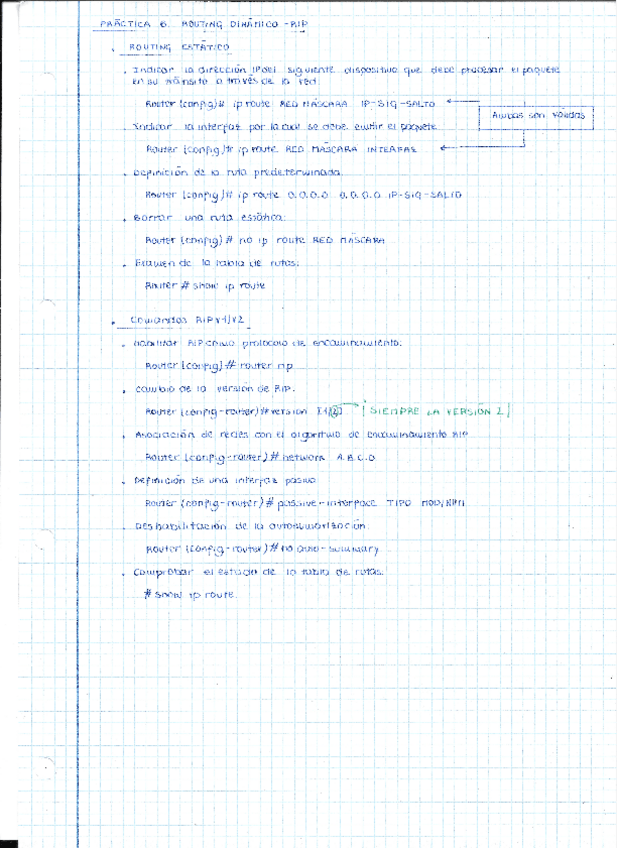 PRÁCTICA 6. ROUTING DINÁMICO - RIP
. ROUTING ESTÁTICO
. Indicar la dirección IP del siguiente dispositivo que debe procesar el paquete
en su tránsito a través de la red:
Router (config)# ip route RED MÁSCARA IP-SIG-SALTO
Ambas son válidas
. Indicar la interfaz por la cual se debe emitir el paquete
Router (config)# ip route RED MÁSCARA INTERFAZ
. Definición de la ruta predeterminada
Router (config)# ip route 0.0.0.0 0.0.0.0 IP-SIG-SALTO
. Borrar una ruta estática:
Router (config)# no ip route RED MÁSCARA
. Examen de la tabla de rutas:
Router # show ip route
. Comandos RIPv1/v2
. Habilitar RIP como protocolo de encaminamiento:
Router (config)# router rip
. Cambio de la versión de RIP.
Router (config-router)#version [1/2] ¡SIEMPRE LA VERSIÓN 2!
. Asociación de redes con el algoritmo de encaminamiento RIP
Router (config-router)# network A.B.C.D
. Definición de una interfaz pasiva
Router (config-router)# passive-interface TIPO MOD/NUM
. Deshabilitación de la autosumarización.
Router (config-router)# no auto-summary
. Comprobar el estado de la tabla de rutas:
# show ip route.